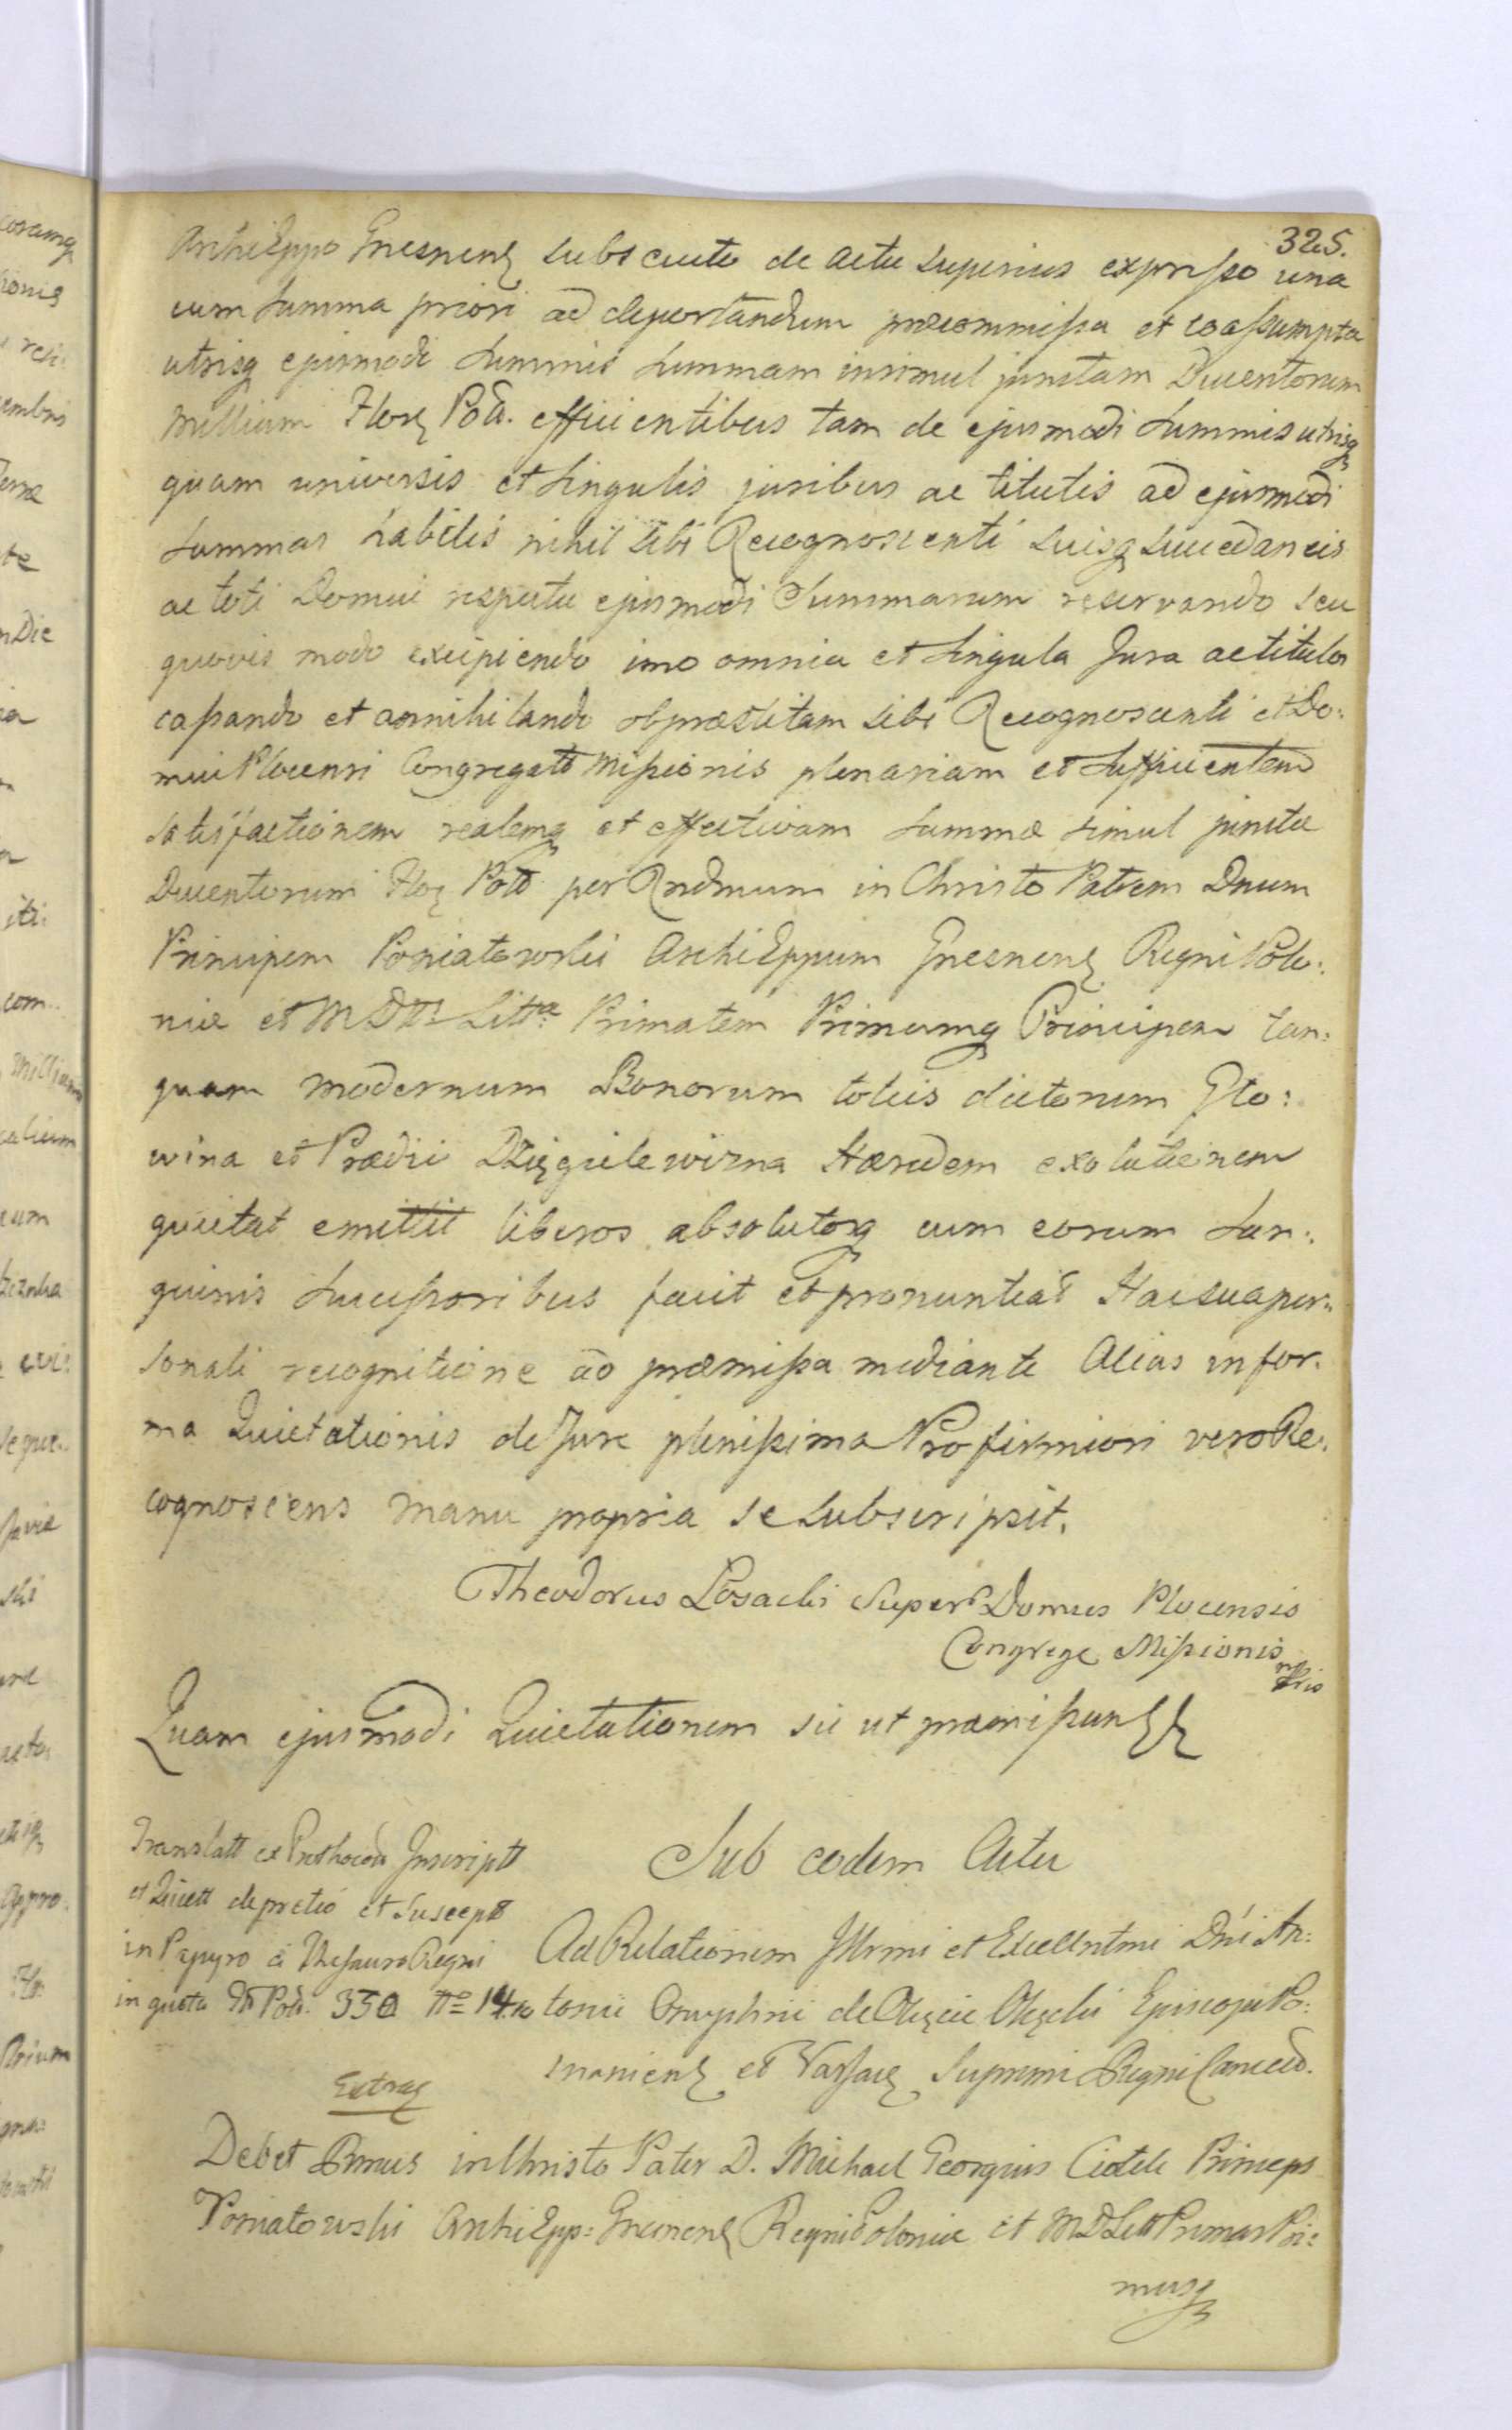 325.
ArchiEppo Gnesnens subscuto de actu superius expresso una
cum summa priori ad deportandum præcommissa et coassumpta
utrisq ejusmodi summis summam insimul junctam Ducentorum
Millium Flor Poll. efficientibus tam de ejusmodi summis utrisq
quam universis et singulis juribus ac titulis ad ejusmodi
summas habitis nihil sibi Recognoscenti suisq succedaneis
ac toti Domui respectu ejusmodi Summarum reservando seu
quovis modo excipiendo imo omnia et singula Jura ac titulos
cassando et annihilando ob præstitam sibi Recognoscenti et Do:
mui Plocensi Congregatt Missionis plenariam et sufficientem
satisfactionem realemq et effectivam summæ simul junctæ
Ducentorum Flor Poll per Rndmum in Christo Patrem Dnum
Principem Poniatowski ArchiEppum Gnesnens Regni Polo:
niæ et M D Litt Primatem Primumq Principem tan:
quam modernum Bonorum totius dictorum Gło:
wina et Prædii Dzięgielewizna Hæredem exolutionem
quietat emittit liberos absolutosq cum eorum san:
guinis successoribus facit et pronuntiat Hac sua per:
sonali recognitione ad præmissa mediante Alias in for:
ma Quietationis de Jure plenissima Pro firmiori vero Re:
cognoscens manu propria se subscripsit.
Theodorus Posacki Super Domus Plocensis
Congreg Missionis
mppris
Quam ejusmodi Quietationem sic ut præmissum
Translatt ex Prothocoll Inscriptt
et Quiett depretio et suscept
in Papyro à Thesauro Regni
in quota Fl Poll. 350 No 14
Extrag
Sub eodem Actu
Ad Relationem Illrmi et Excellntmi Dni An:
tonii Onuphrii de Okęcie Okęcki Episcopi Po:
snaniens et Varsav Supremi Regni Cancell.
Debet Rmus in Christo Pater D. Michael Georgius Ciołek Princeps
Poniatowski ArchiEpp: Gnesnens Regni Poloniæ et M D Litt Primas Pri:
musq